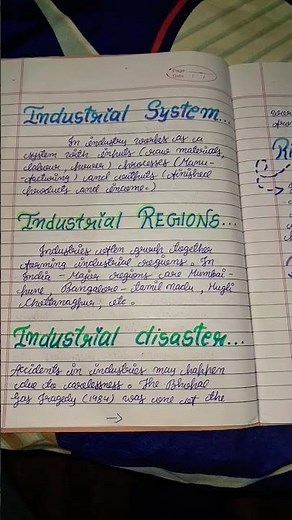 Page
Date
Industrial System...
In industry works as a
system with inputs (raw materials,
labour, power) processes (Manu-
-facturing) and outputs (finished
products and income.)
Industrial REGIONS...
Industries often group together
forming industrial regions. In
India - Major regions are Mumbai-
-Pune, Bangalore - Tamil nadu, Hugli
Chottanagpur, etc.
Industrial disaster...
Accidents in industries may happen
due to carelessness. The Bhopal
Gas Tragedy (1984) was one of the
→
Ri